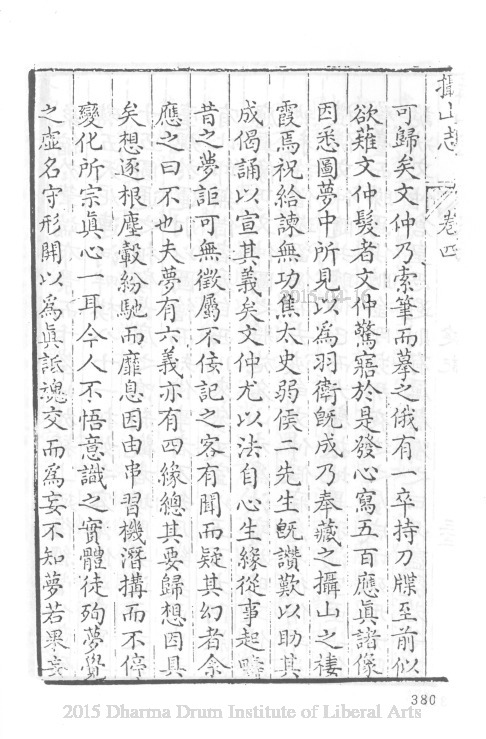 攝山志
卷四
可歸矣文仲乃索筆而摹之俄有一卒持刀牒至前似
欲薙文仲髮者文仲驚寤於是發心寫五百應真諸像
因悉圖夢中所見以為羽衛既成乃奉藏之攝山之棲
霞焉祝給諫無功焦太史弱侯二先生既讚歎以助其
成偈誦以宣其義矣文仲尤以法自心生緣從事起疇
昔之夢詎可無徵屬不佞記之客有聞而疑其幻者余
應之曰不也夫夢有六義亦有四緣總其要歸想因具
矣想逐根塵轂紛馳而靡息因由串習機潛搆而不停
變化所宗眞心一耳今人不悟意識之實體徒殉夢覺
之虛名守形開以爲眞詆魂交而爲妄不知夢若果妄
380
2015-04-16
2015 Dharma Drum Institute of Liberal Arts